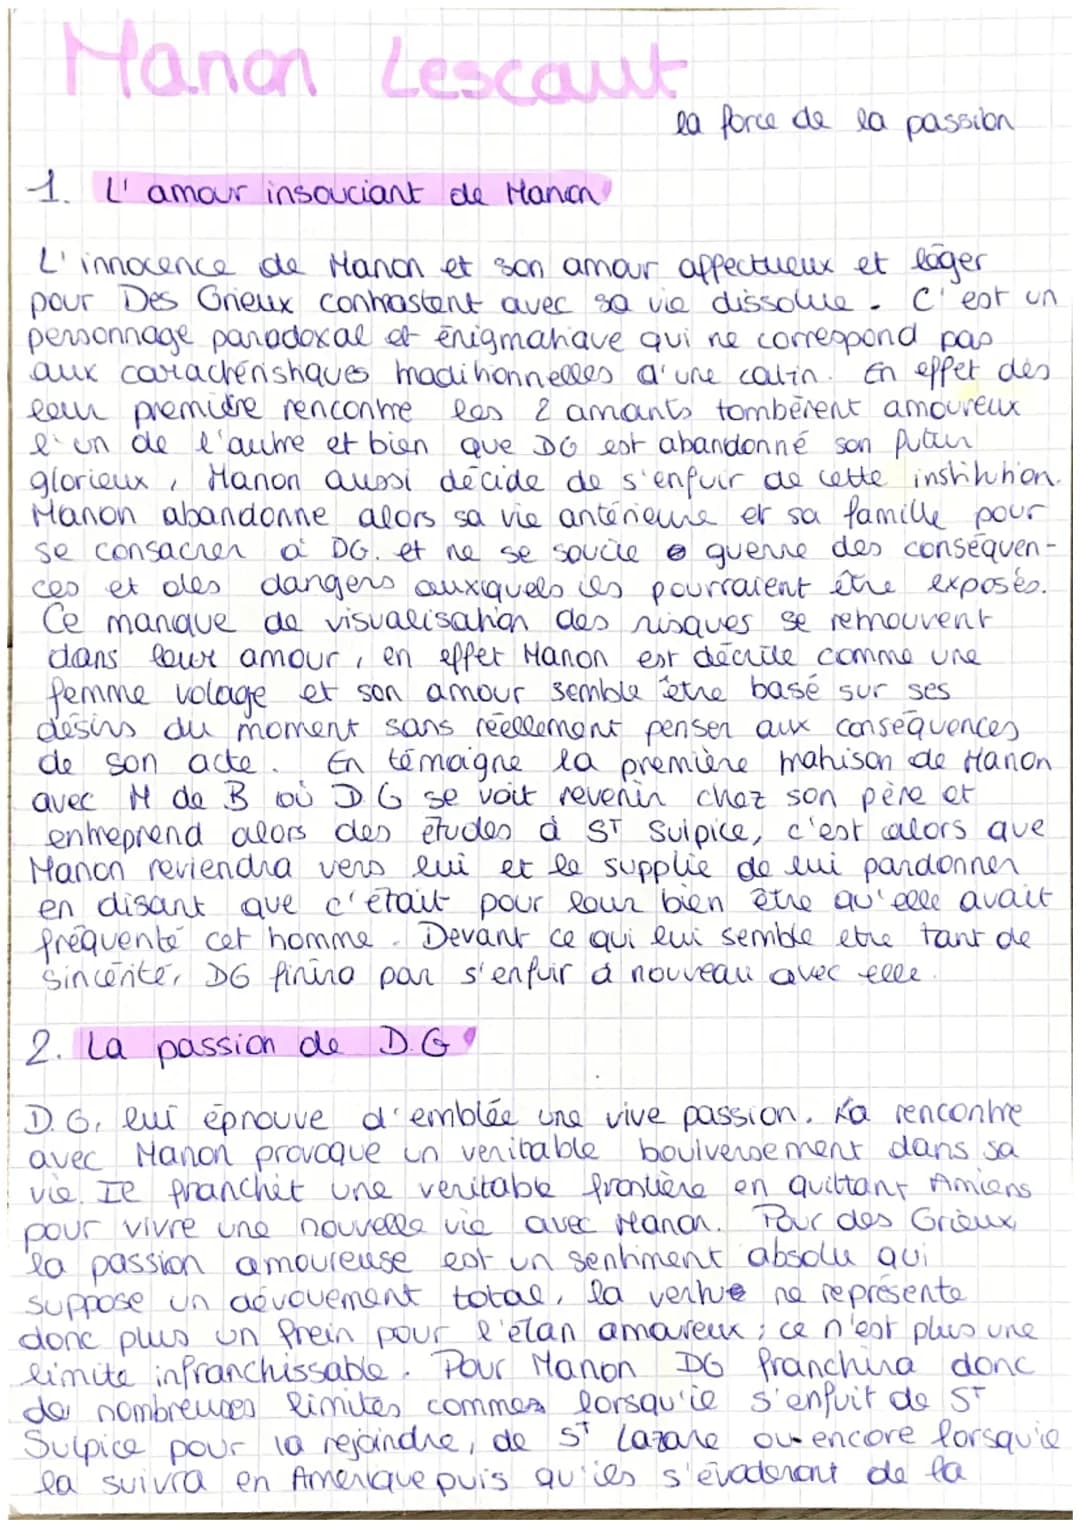 Manon Lescaut
la force de la passion
1. L'amour insouciant de Manon
L'innocence de Manon et son amour affectueux et léger
pour Des Grieux contrastent avec sa vie dissolue. C'est un
personnage paradoxal et énigmatique qui ne correspond pas
aux caractéristiques traditionnelles d'une catin. En effet dès
leur première rencontre les 2 amants tombèrent amoureux
l'un de l'autre et bien que DG est abandonné son futur
glorieux, Manon aussi décide de s'enfuir de cette institution.
Manon abandonne alors sa vie antérieure et sa famille pour
se consacrer à DG. et ne se soucie guerre des conséquen-
ces et des dangers auxiquels ils pourraient être exposés.
Ce manque de visualisation des risques se retrouvent
dans leur amour, en effet Manon est décrite comme une
femme volage et son amour semble être basé sur ses
désirs du moment sans réellement penser aux conséquences
de son acte. En témoigne la première trahison de Manon
avec M de B où D.G se voit revenir chez son père et
entreprend alors des études à ST Sulpice, c'est alors que
Manon reviendra vers lui et le supplie de lui pardonner
en disant que c'était pour leur bien être qu'elle avait
fréquenté cet homme. Devant ce qui lui semble etre tant de
sincérité, DG finira par s'enfuir à nouveau avec elle.
2. La passion de D.G
D.G, lui éprouve d'emblée une vive passion. La rencontre
avec Manon provoque un veritable boulversement dans sa
vie. Il franchit une veritable frontière en quittant Amiens
pour vivre une nouvelle vie avec Manon. Pour des Grieux,
la passion amoureuse est un sentiment absolu qui
suppose un dévouement total, la vertue ne représente
donc plus un frein pour l'élan amoureux ; ce n'est plus une
limite infranchissable. Pour Manon DG franchira donc
de nombreuses limites commes lorsqu'il s'enfuit de ST
Sulpice pour la rejoindre, de ST Lazare ou encore lorsqu'il
la suivra en Amerique puis qu'ils s'évaderont de la